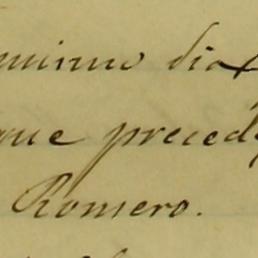 mismo dia
que preced
Romero.